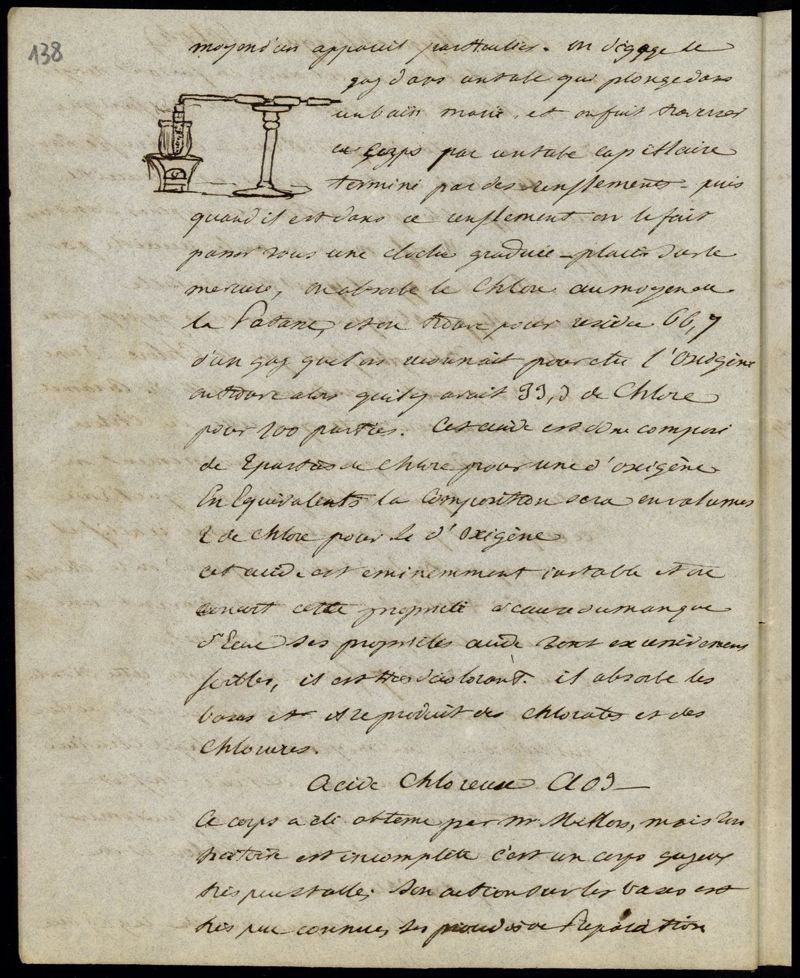 138
moyen d'un appareil particulier. on dégage le
gaz dans un tube qui plonge dans
un bain marie, et on fait traverser
ce corps par un tube capillaire
terminé par des renflements. puis
quand il est dans ce renflement on le fait
passer sous une cloche graduée placée dans le
mercure, on absorbe le Chlore au moyen de
la Potasse, et on trouve pour résidu 66,7
d'un gaz que l'on reconnait pour etre l'Oxigène
on trouve alors qu'il y avait 33,3 de Chlore
pour 100 parties. Cet acide est donc composé
de 2 parties de Chlore pour une d'oxigène
En Equivalents la Composition sera en volumes
2 de Chlore pour de d'Oxigène
cet acide est eminemment instable et on
connait cette propriété a cause du manque
d'Eau Ses propriétés acides sont excessivement
faibles, il est très décolorant. il absorbe les
bases et il se produit des Chlorates et des
Chlorures.
Acide Chloreux ClO3
Ce corps a été obtenu par Mr Millon, mais son
histoire est incomplète c'est un corps gazeux
très peu stable; Son action sur les bases est
très peu connue, ses procédés de Préparation